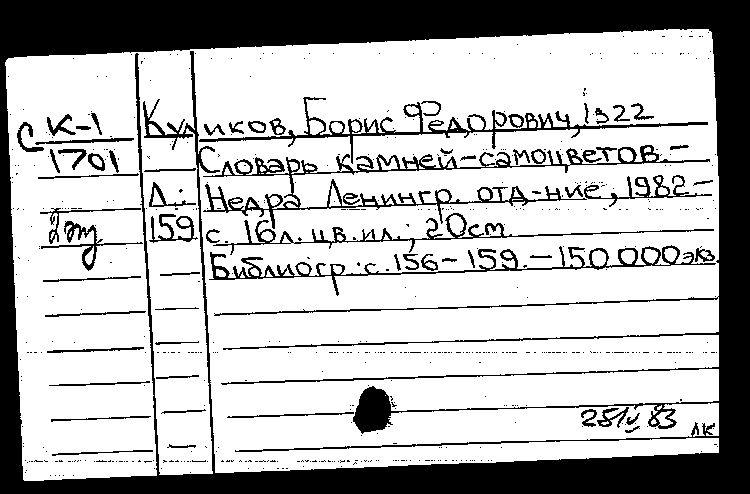 С К-1 Куликов, Борис Федорович, 1922
1701 Словарь камней-самоцветов.-
Л.: Недра Ленингр. отд-ние, 1982-
2 эк 159 с, 16л. цв. ил.; 20см.
Библиогр.: с. 156-159.-150 000 экз.
83
лк